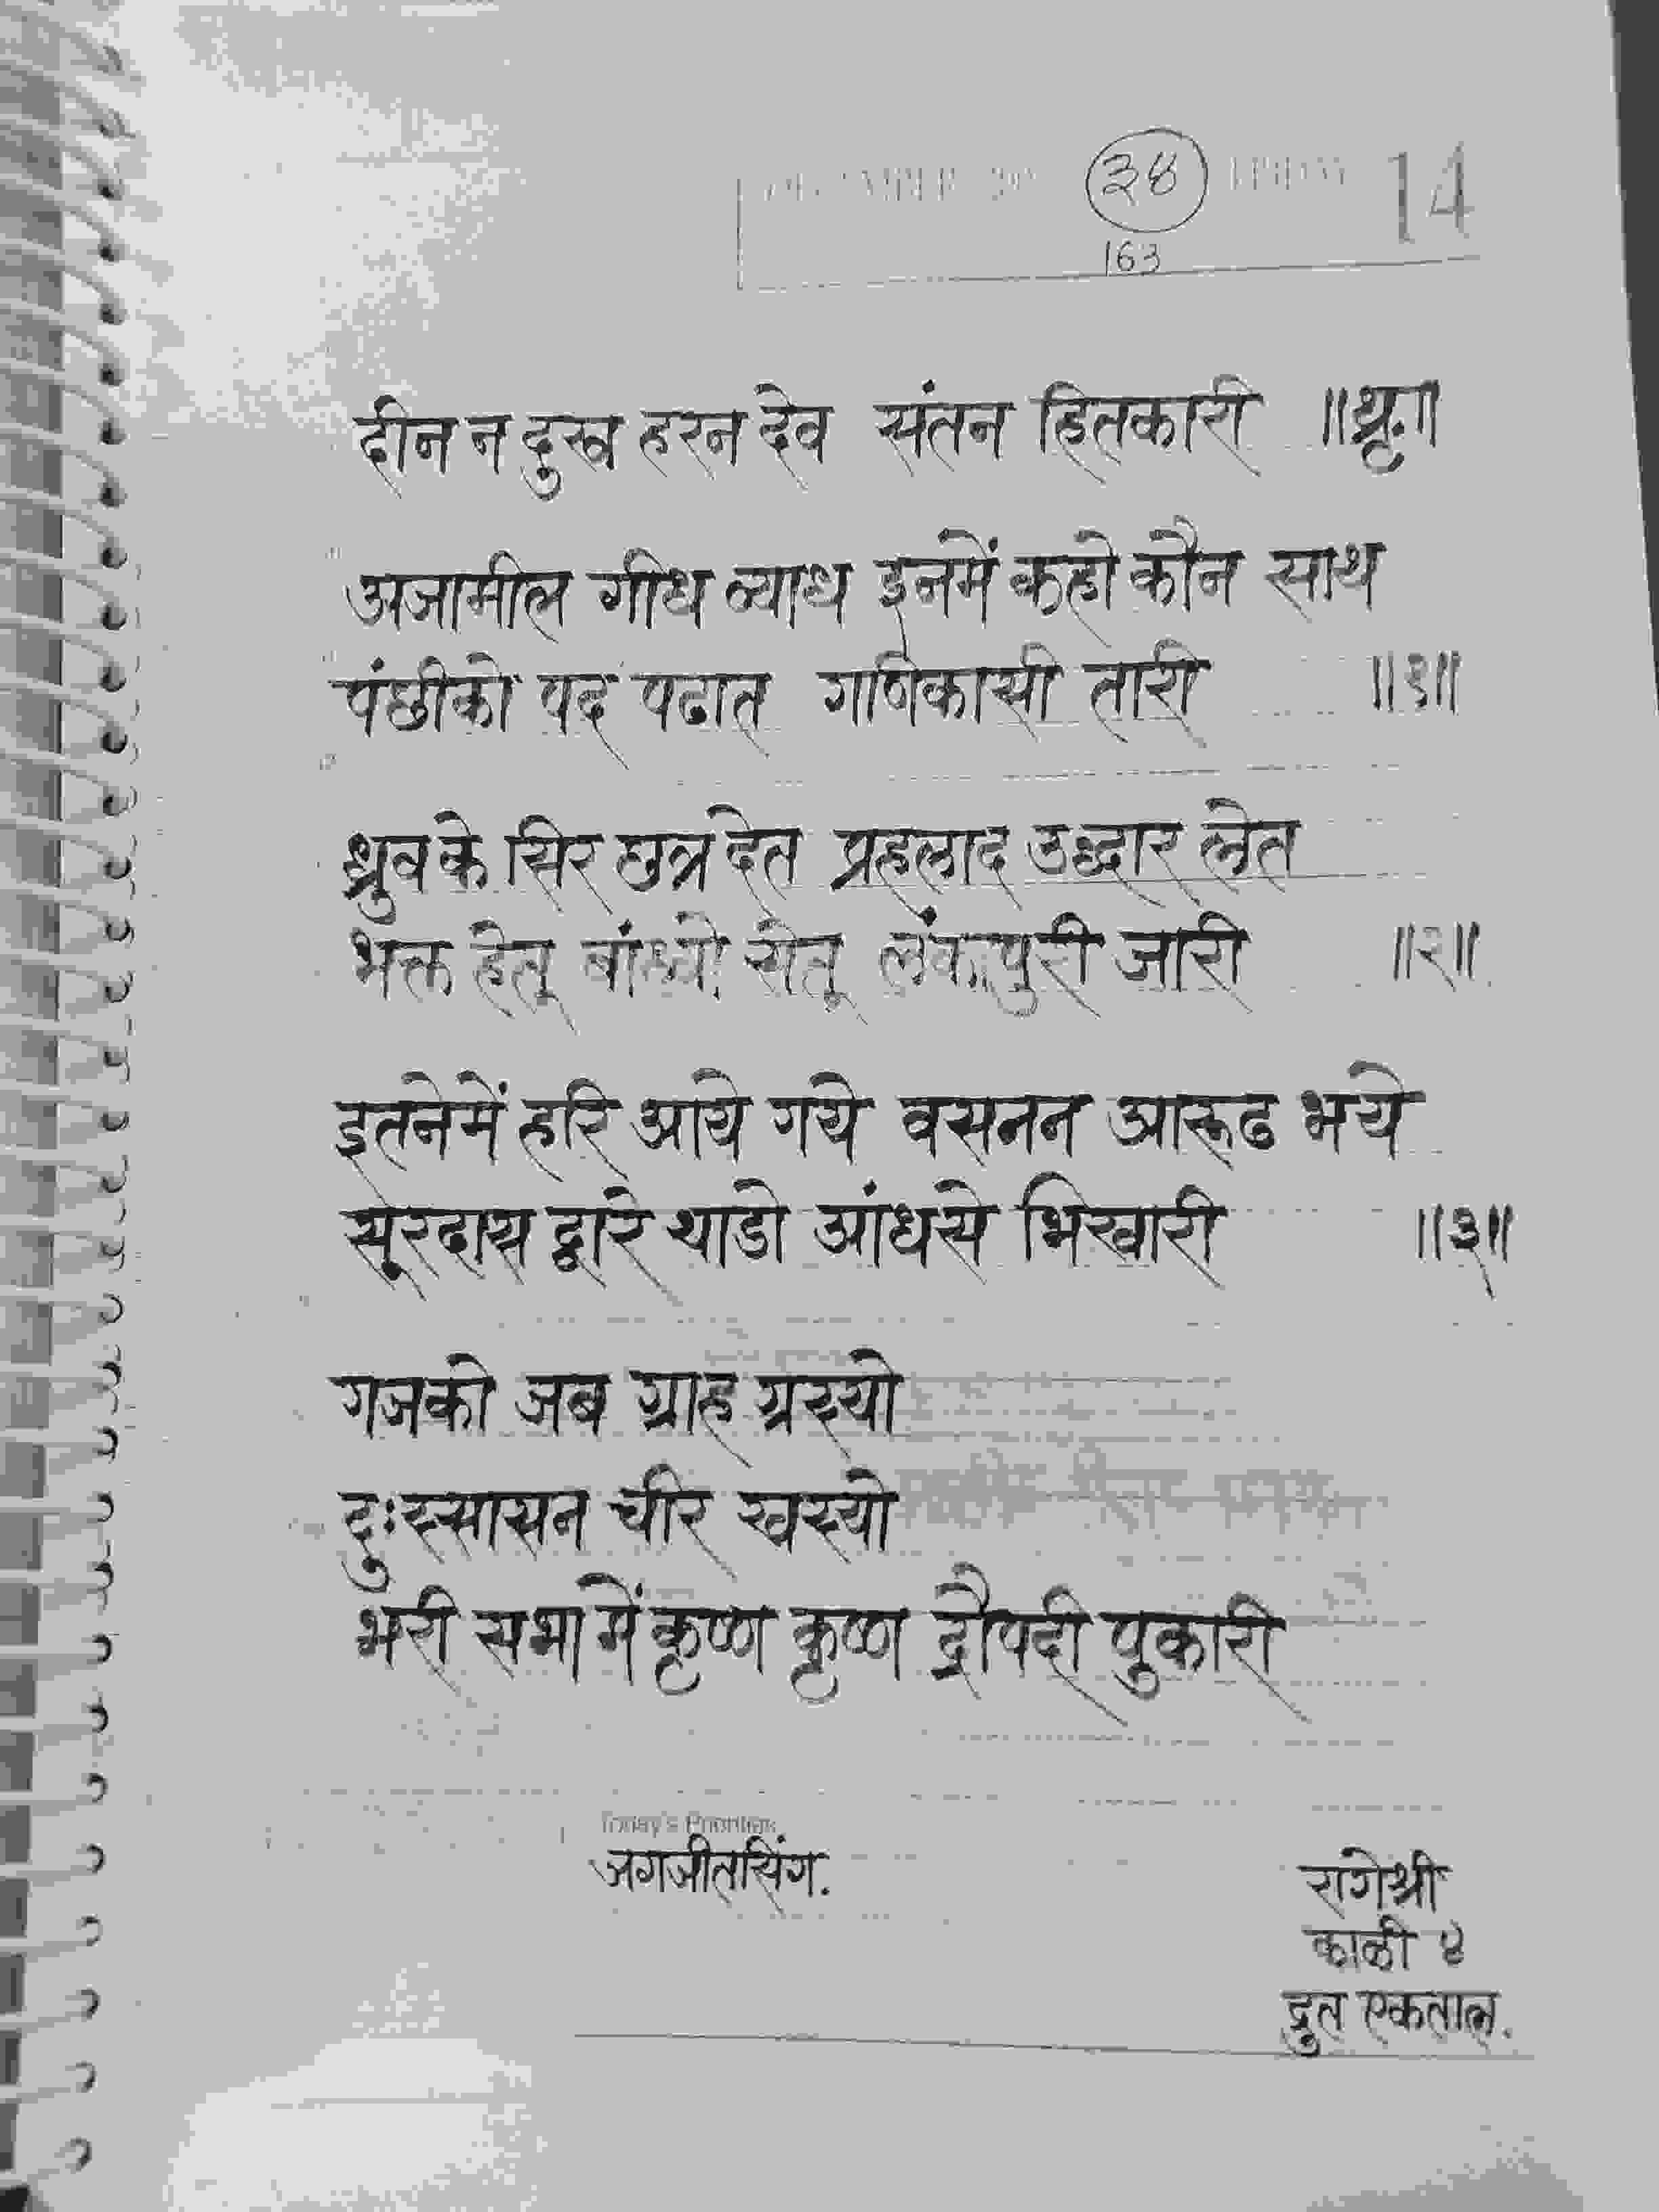 ३४
14
163
दीन न दुख हरन देव संतन हितकारी ॥धृ.॥
अजामील गीध व्याध इनमें कहो कौन साध
पंछीको पद पढात गणिकासी तारी ॥१॥
ध्रुव के सिर छत्र देत प्रहलाद उद्धार लेत
भक्त हेतू बांध्यो सेतू लंकापुरी जारी ॥२॥
इतनेमें हरि आये गये वसनन आरूढ भये
सूरदास द्वारे थाडो आंधसे भिखारी ॥३॥
गजको जब ग्राह ग्रस्यो
दुःस्सासन चीर खस्यो
भरी सभा में कृष्ण कृष्ण द्रौपदी पुकारी
Today's Priorities
जगजीतसिंग.
रागेश्री
काळी ४
द्रुत एकताल.